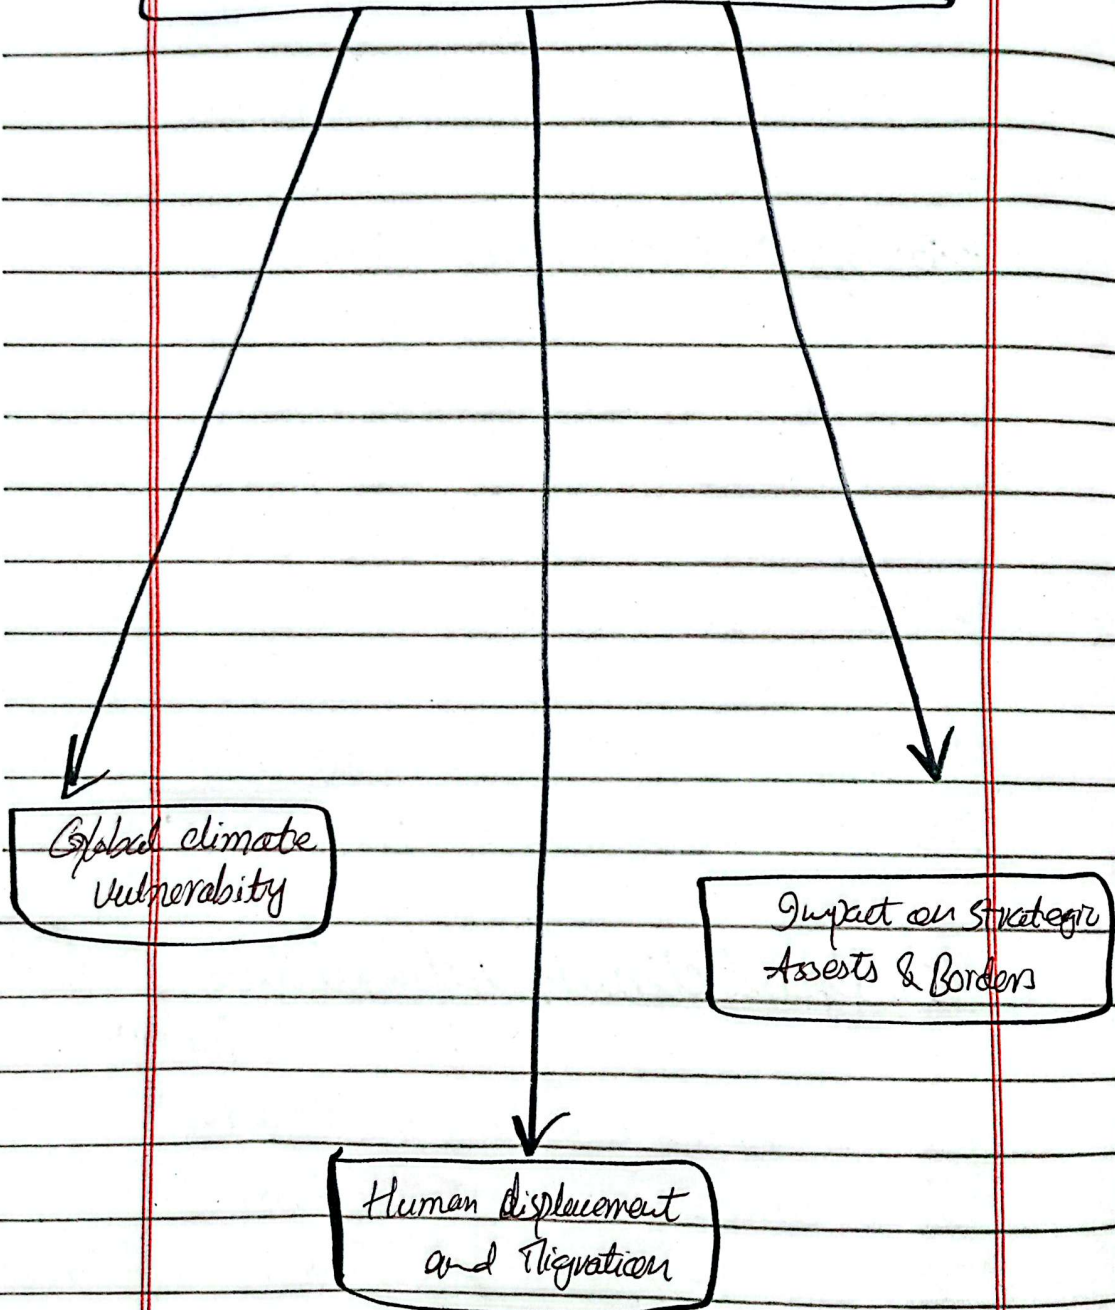 Global climate
vulnerabity
Impact on strategic
Assests & Borders
Human displacement
and Migration